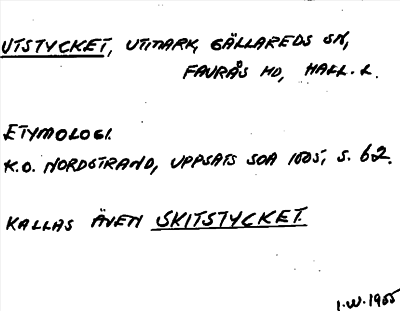 UTSTYCKET, UTMARK, GÄLLAREDS SN,
FAURÅS HD, HALL. L.
ETYMOLOGI.
K.O. NORDSTRAND, UPPSATS SOA 1605, S. 62.
KALLAS ÄVEN SKITSTYCKET.
I.W. 1955